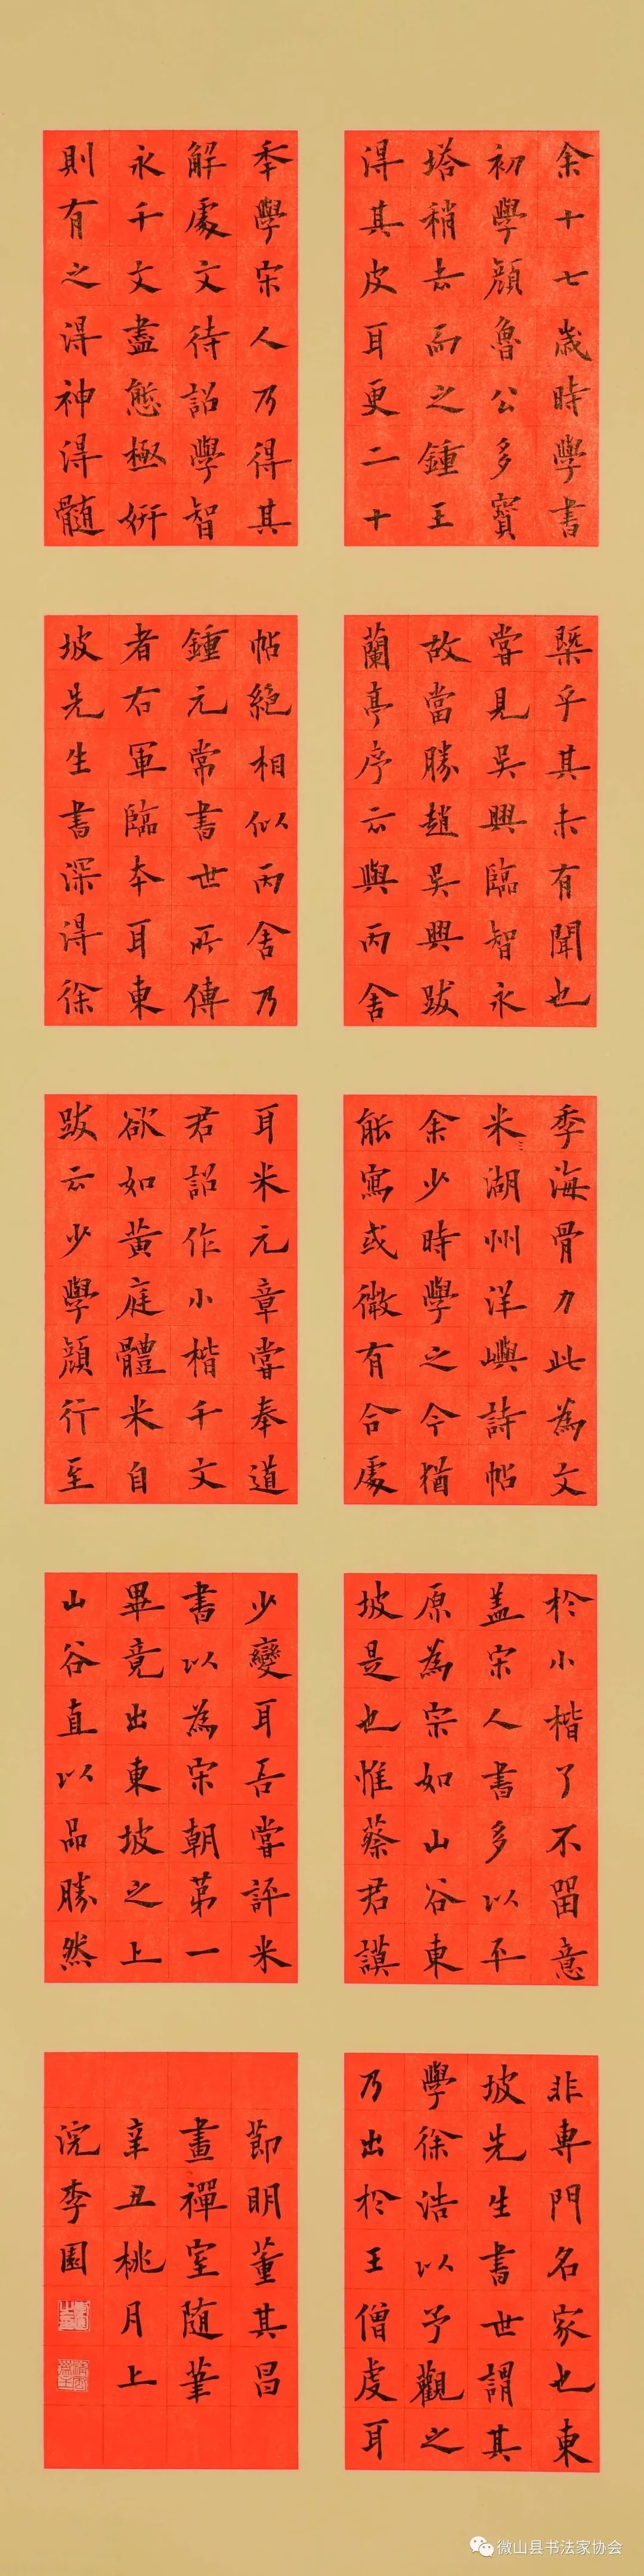 余十七歲時學書
初學顏魯公多寶
塔稍去而之鍾王
得其皮耳更二十
秊學宋人乃得其
解處文待詔學智
永千文盡態極妍
則有之得神得髓
槩乎其未有聞也
嘗見吳興臨智永
故當勝趙吳興跋
蘭亭序云與丙舍
帖絕相似丙舍乃
鍾元常書世所傳
者右軍臨本耳東
坡先生書深得徐
季海骨力此為文
米湖州洋嶼詩帖
余少時學之今猶
能寫或微有合處
耳米元章嘗奉道
君詔作小楷千文
欲如黃庭體米自
跋云少學顏行至
於小楷了不留意
蓋宋人書多以平
原為宗如山谷東
坡是也惟蔡君謨
少變耳吾嘗評米
書以為宋朝第一
畢竟出東坡之上
山谷直以品勝然
非專門名家也東
坡先生書世謂其
學徐浩以予觀之
乃出於王僧虔耳
節明董其昌
畫禪室隨筆
辛丑桃月上
浣李園
微山县书法家协会